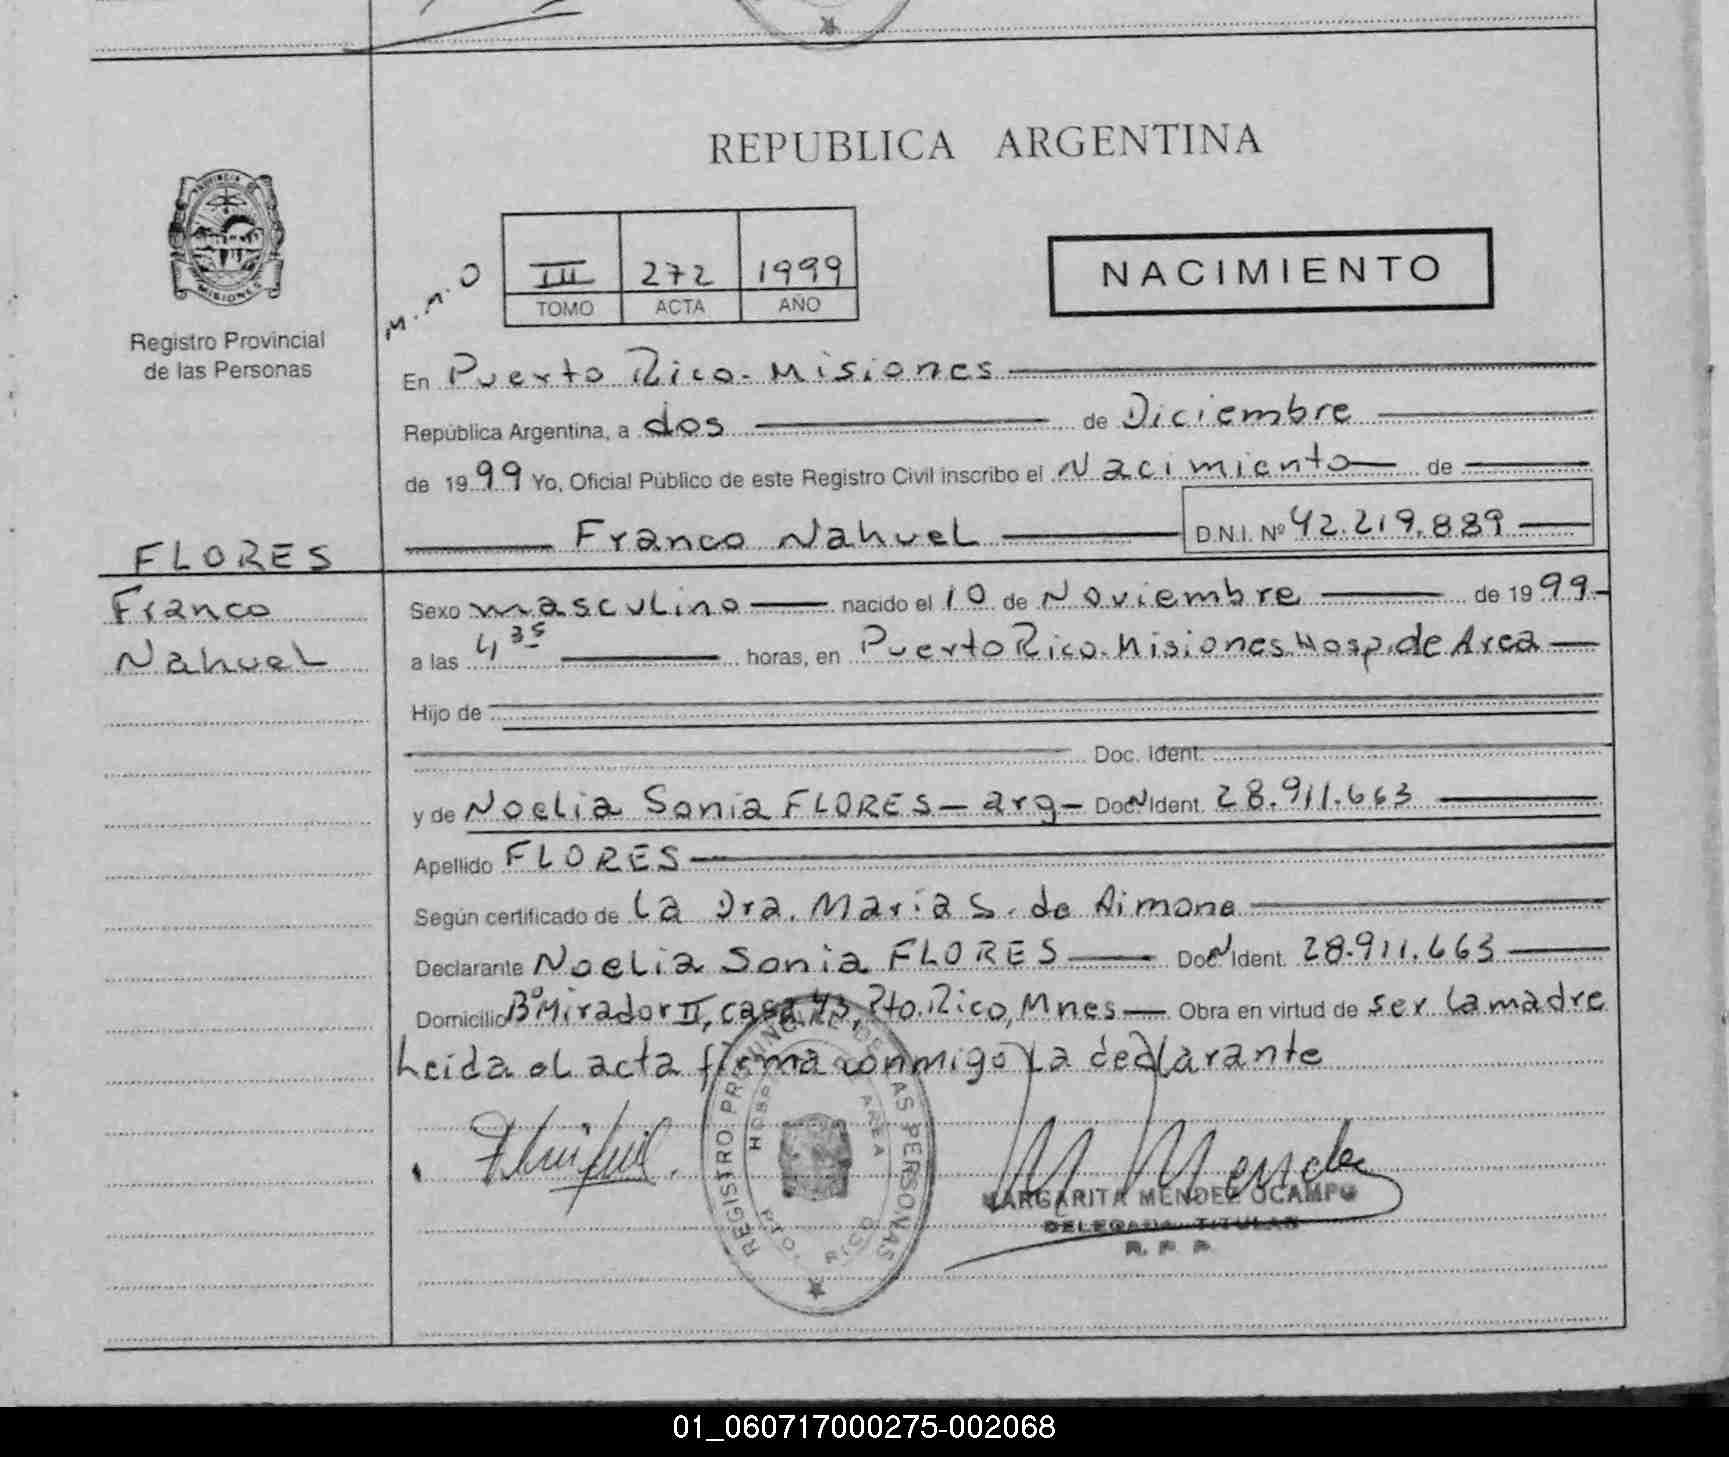 REPUBLICA ARGENTINA
PROVINCIA DE
MISIONES
Registro Provincial
de las Personas
M.M.O
III 272 1999
TOMO ACTA AÑO
NACIMIENTO
En Puerto Rico - Misiones
República Argentina, a dos de Diciembre
de 1999 Yo, Oficial Público de este Registro Civil inscribo el Nacimiento de
Franco Nahuel D.N.I. Nº 42.219.889
FLORES
Franco
Nahuel
Sexo masculino nacido el 10 de Noviembre de 1999
a las 4,35 horas, en Puerto Rico - Misiones Hosp. de Area
Hijo de
Doc. Ident.
y de Noelia Sonia FLORES - arg - Doc. N Ident. 28.911.663
Apellido FLORES
Según certificado de la Dra. Maria S. de Aimone
Declarante Noelia Sonia FLORES Doc. N Ident. 28.911.663
Domicilio Bº Mirador II, casa 43, Pto. Rico, Mnes Obra en virtud de ser la madre
Leida el acta firma conmigo la declarante
REGISTRO PROVINCIAL DE LAS PERSONAS
HOSP. AREA
PTO. RICO
M Mendez
MARGARITA MENDEZ OCAMPO
DELEGADA TITULAR
R. P. P.
01_060717000275-002068